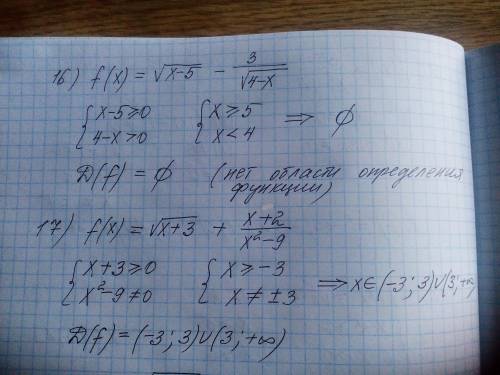 16) f(x) = √(x-5) - 3/√(4-x)
{x-5≥0 {x≥5 ⇒ ∅
{4-x>0 {x<4
D(f) = ∅ (нет области определения
функции)
17) f(x) = √(x+3) + (x+2)/(x²-9)
{x+3≥0 {x≥-3 ⇒ x∈(-3; 3)∪(3; +∞
{x²-9≠0 {x≠±3
D(f) = (-3; 3)∪(3; +∞)